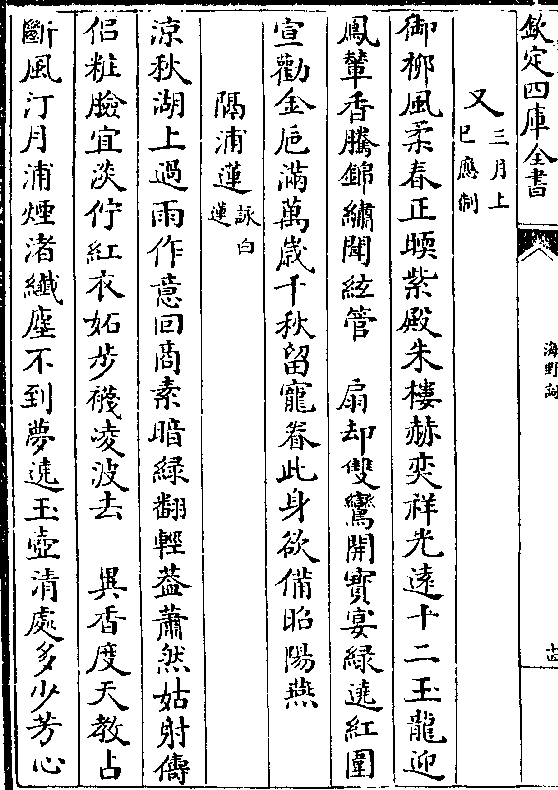 欽定四庫全書
海野詞
十四
又三月上巳應制
御栁風柔春正暖紫殿朱樓赫奕祥光逺十二玉龍迎
鳳輦香騰錦繡聞絃管　扇却雙鸞開寳宴緑遶紅圍
宣勸金巵滿萬歳千秋留寵眷此身欲備昭陽燕
隔浦蓮詠白蓮
涼秋湖上過雨作意回商素暗緑翻輕葢蕭然姑射儔
侣粧臉宜淡佇紅衣妬步襪凌波去　異香度天教占
斷風汀月浦煙渚纎塵不到夢遶玉壺清處多少芳心